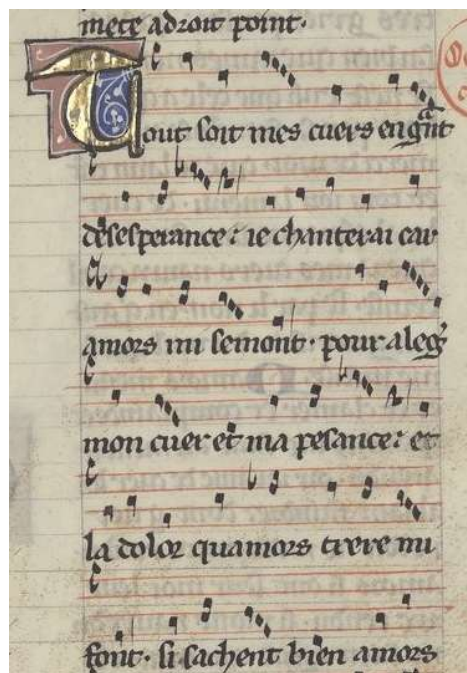 mete adroit point.
Tout soit mes cuers en gͣnt
desesperance: ie chanterai car
amors mi semont. pour aleg̃
mon cuer et ma pesance: et
la dolor quamors traire mi
font. si sachent bien amors